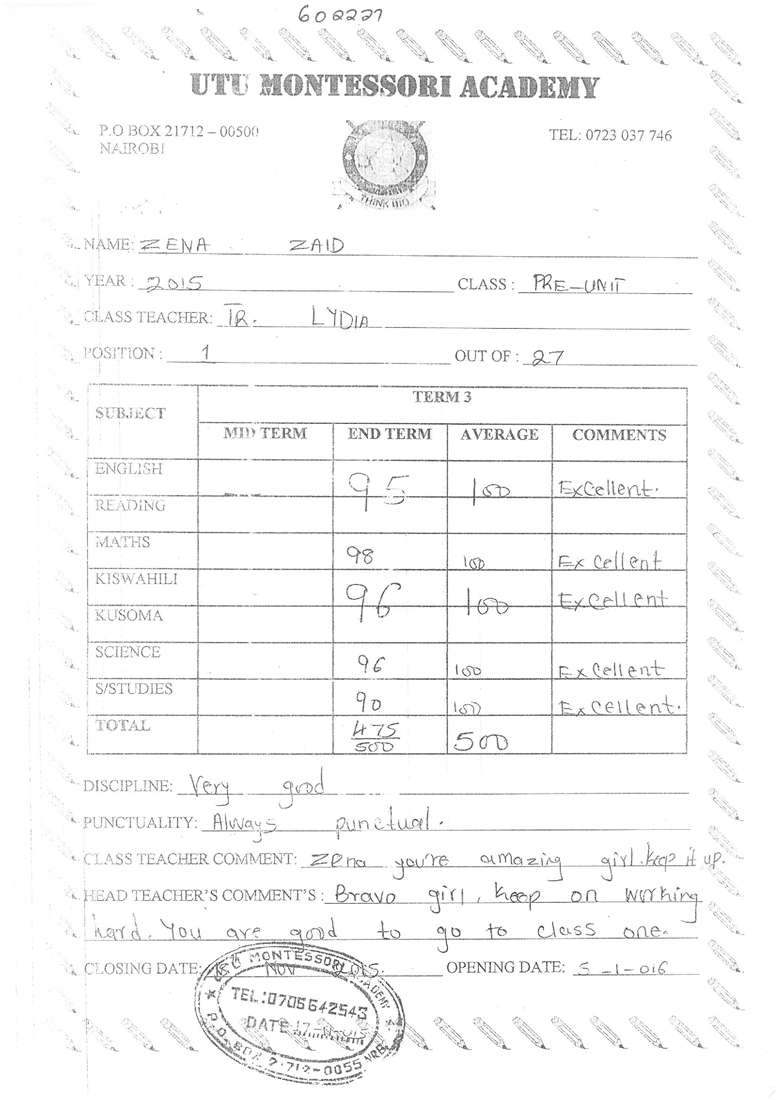 602227
UTU MONTESSORI ACADEMY
P.O BOX 21712 – 00500
NAIROBI
TEL: 0723 037 746
THINK BIG
NAME: ZENA ZAID
YEAR : 2015 CLASS : PRE-UNIT
CLASS TEACHER: TR. LYDIA
POSITION : 1 OUT OF : 27
SUBJECT TERM 3
MID TERM END TERM AVERAGE COMMENTS
ENGLISH 95 100 Excellent.
READING
MATHS 98 100 Excellent
KISWAHILI 96 100 Excellent
KUSOMA
SCIENCE 96 100 Excellent
S/STUDIES 90 100 Excellent.
TOTAL 475/500 500
DISCIPLINE: Very good
PUNCTUALITY: Always punctual.
CLASS TEACHER COMMENT: Zena you're amazing girl. keep it up.
HEAD TEACHER'S COMMENT'S : Bravo girl, keep on working
hard. You are good to go to class one.
CLOSING DATE: NOV 2015. OPENING DATE: 5-1-016
UTU MONTESSORI ACADEMY
TEL:0705642543
DATE
P.O. BOX